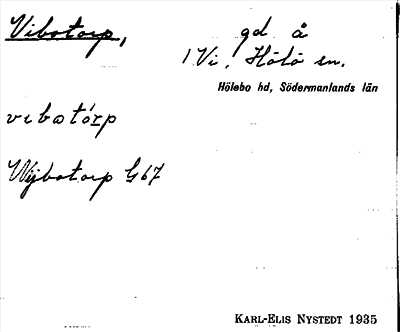 Vibotorp, gd å
1 Vi, Hölö sn.
Hölebo hd, Södermanlands län
vɩbotórp
Wijbotorp G67
KARL-ELIS NYSTEDT 1935